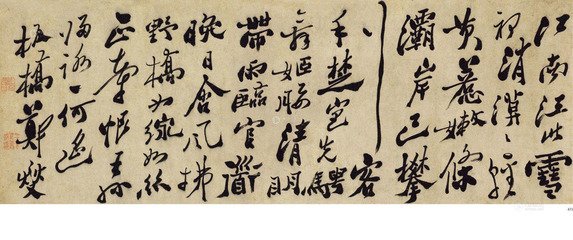 江南江北雪
初消漠々輕
黄惹嫩條
灞岸已攀
行客
手楚宮先騁
舞姬腰清明
帶雨臨官道
晚日含風拂
野橋如線如絲
正牽恨王孫
歸路一何遙
板橋鄭燮